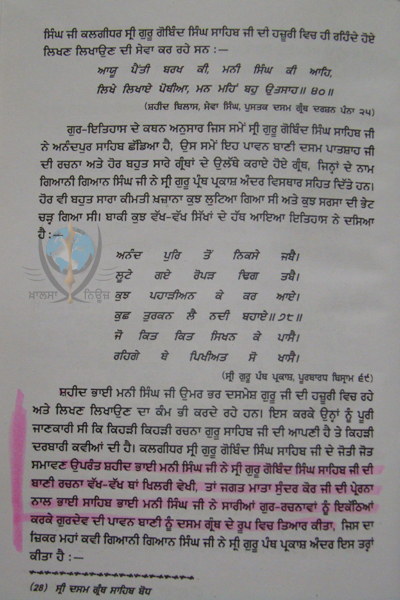 ਸਿੰਘ ਜੀ ਕਲਗੀਧਰ ਸ੍ਰੀ ਗੁਰੂ ਗੋਬਿੰਦ ਸਿੰਘ ਸਾਹਿਬ ਜੀ ਦੀ ਹਜ਼ੂਰੀ ਵਿਚ ਹੀ ਰਹਿੰਦੇ ਹੋਏ
ਲਿਖਣ ਲਿਖਾਉਣ ਦੀ ਸੇਵਾ ਕਰ ਰਹੇ ਸਨ :—
ਆਯੂ ਪੈਂਤੀ ਬਰਖ ਕੀ, ਮਨੀ ਸਿੰਘ ਕੀ ਆਹਿ,
ਲਿਖੇ ਲਿਖਾਏ ਪੋਥੀਆ, ਮਨ ਮਹਿਂ ਬਹੁ ਉਤਸਾਹ॥ ੪੦॥
(ਸ਼ਹੀਦ ਬਿਲਾਸ, ਸੇਵਾ ਸਿੰਘ, ਪੁਸਤਕ ਦਸਮ ਗ੍ਰੰਥ ਦਰਸ਼ਨ ਪੰਨਾ ੨੫)
ਗੁਰ-ਇਤਿਹਾਸ ਦੇ ਕਥਨ ਅਨੁਸਾਰ ਜਿਸ ਸਮੇਂ ਸ੍ਰੀ ਗੁਰੂ ਗੋਬਿੰਦ ਸਿੰਘ ਸਾਹਿਬ ਜੀ
ਨੇ ਅਨੰਦਪੁਰ ਸਾਹਿਬ ਛੱਡਿਆ ਹੈ, ਉਸ ਸਮੇਂ ਇਹ ਪਾਵਨ ਬਾਣੀ ਦਸਮ ਪਾਤਸ਼ਾਹ ਜੀ
ਦੀ ਰਚਨਾ ਅਤੇ ਹੋਰ ਬਹੁਤ ਸਾਰੇ ਗ੍ਰੰਥਾਂ ਦੇ ਉਲੱਥੇ ਕਰਾਏ ਹੋਏ ਗ੍ਰੰਥ, ਜਿਨ੍ਹਾਂ ਦੇ ਨਾਮ
ਗਿਆਨੀ ਗਿਆਨ ਸਿੰਘ ਜੀ ਨੇ ਸ੍ਰੀ ਗੁਰੂ ਪ੍ਰੰਥ ਪ੍ਰਕਾਸ਼ ਅੰਦਰ ਵਿਸਥਾਰ ਸਹਿਤ ਦਿੱਤੇ ਹਨ।
ਹੋਰ ਵੀ ਬਹੁਤ ਸਾਰਾ ਕੀਮਤੀ ਖ਼ਜ਼ਾਨਾ ਕੁਝ ਲੁਟਿਆ ਗਿਆ ਸੀ ਅਤੇ ਕੁਝ ਸਰਸਾ ਦੀ ਭੇਟ
ਚੜ੍ਹ ਗਿਆ ਸੀ। ਬਾਕੀ ਕੁਝ ਵੱਖ-ਵੱਖ ਸਿੱਖਾਂ ਦੇ ਹੱਥ ਆਇਆ ਇਤਿਹਾਸ ਨੇ ਦਸਿਆ
ਹੈ :—
ਅਨੰਦ ਪੁਰਿ ਤੋਂ ਨਿਕਸੇ ਜਬੈ।
ਲੂਟੇ ਗਏ ਰੋਪੜ ਢਿਗ ਤਬੈ।
ਕੁਝ ਪਹਾੜੀਅਨ ਕੇ ਕਰ ਆਏ।
ਕੁਛ ਤੁਰਕਨ ਲੈ ਨਦੀ ਬਹਾਏ॥ ੭੮॥
ਜੋ ਕਿਤ ਕਿਤ ਸਿਖਨ ਕੇ ਪਾਸੈ।
ਰਹਿਗੇ ਥੇ ਪਿਖੀਅਤ ਸੋ ਖਾਸੈ।
(ਸ੍ਰੀ ਗੁਰੂ ਪੰਥ ਪ੍ਰਕਾਸ਼, ਪੂਰਬਾਰਧ ਬਿਸ੍ਰਾਮ ੬੯)
ਖ਼ਾਲਸਾ ਨਿਊਜ਼
ਸ਼ਹੀਦ ਭਾਈ ਮਨੀ ਸਿੰਘ ਜੀ ਉਮਰ ਭਰ ਦਸਮੇਸ਼ ਗੁਰੂ ਜੀ ਦੀ ਹਜ਼ੂਰੀ ਵਿਚ ਰਹੇ
ਅਤੇ ਲਿਖਣ ਲਿਖਾਉਣ ਦਾ ਕੰਮ ਭੀ ਕਰਦੇ ਰਹੇ ਹਨ। ਇਸ ਕਰਕੇ ਉਨ੍ਹਾਂ ਨੂੰ ਪੂਰੀ
ਜਾਣਕਾਰੀ ਸੀ ਕਿ ਕਿਹੜੀ ਕਿਹੜੀ ਰਚਨਾ ਗੁਰੂ ਸਾਹਿਬ ਜੀ ਦੀ ਆਪਣੀ ਹੈ ਤੇ ਕਿਹੜੀ
ਦਰਬਾਰੀ ਕਵੀਆਂ ਦੀ ਹੈ। ਕਲਗੀਧਰ ਸ੍ਰੀ ਗੁਰੂ ਗੋਬਿੰਦ ਸਿੰਘ ਸਾਹਿਬ ਜੀ ਦੇ ਜੋਤੀ ਜੋਤ
ਸਮਾਵਣ ਉਪਰੰਤ ਸ਼ਹੀਦ ਭਾਈ ਮਨੀ ਸਿੰਘ ਜੀ ਨੇ ਸ੍ਰੀ ਗੁਰੂ ਗੋਬਿੰਦ ਸਿੰਘ ਸਾਹਿਬ ਜੀ ਦੀ
ਬਾਣੀ ਰਚਨਾ ਵੱਖ-ਵੱਖ ਥਾਂ ਖਿਲਰੀ ਵੇਖੀ, ਤਾਂ ਜਗਤ ਮਾਤਾ ਸੁੰਦਰ ਕੌਰ ਜੀ ਦੀ ਪ੍ਰੇਰਨਾ
ਨਾਲ ਭਾਈ ਸਾਹਿਬ ਭਾਈ ਮਨੀ ਸਿੰਘ ਜੀ ਨੇ ਸਾਰੀਆਂ ਗੁਰ-ਰਚਨਾਵਾਂ ਨੂੰ ਇਕੱਠਿਆਂ
ਕਰਕੇ ਗੁਰਦੇਵ ਦੀ ਪਾਵਨ ਬਾਣੀ ਨੂੰ ਦਸਮ ਗ੍ਰੰਥ ਦੇ ਰੂਪ ਵਿਚ ਤਿਆਰ ਕੀਤਾ, ਜਿਸ ਦਾ
ਜ਼ਿਕਰ ਮਹਾਂ ਕਵੀ ਗਿਆਨੀ ਗਿਆਨ ਸਿੰਘ ਜੀ ਨੇ ਸ੍ਰੀ ਗੁਰੂ ਪੰਥ ਪ੍ਰਕਾਸ਼ ਅੰਦਰ ਇਸ ਤਰ੍ਹਾਂ
ਕੀਤਾ ਹੈ :—
(28) ਸ੍ਰੀ ਦਸਮ ਗ੍ਰੰਥ ਸਾਹਿਬ ਬੋਧ